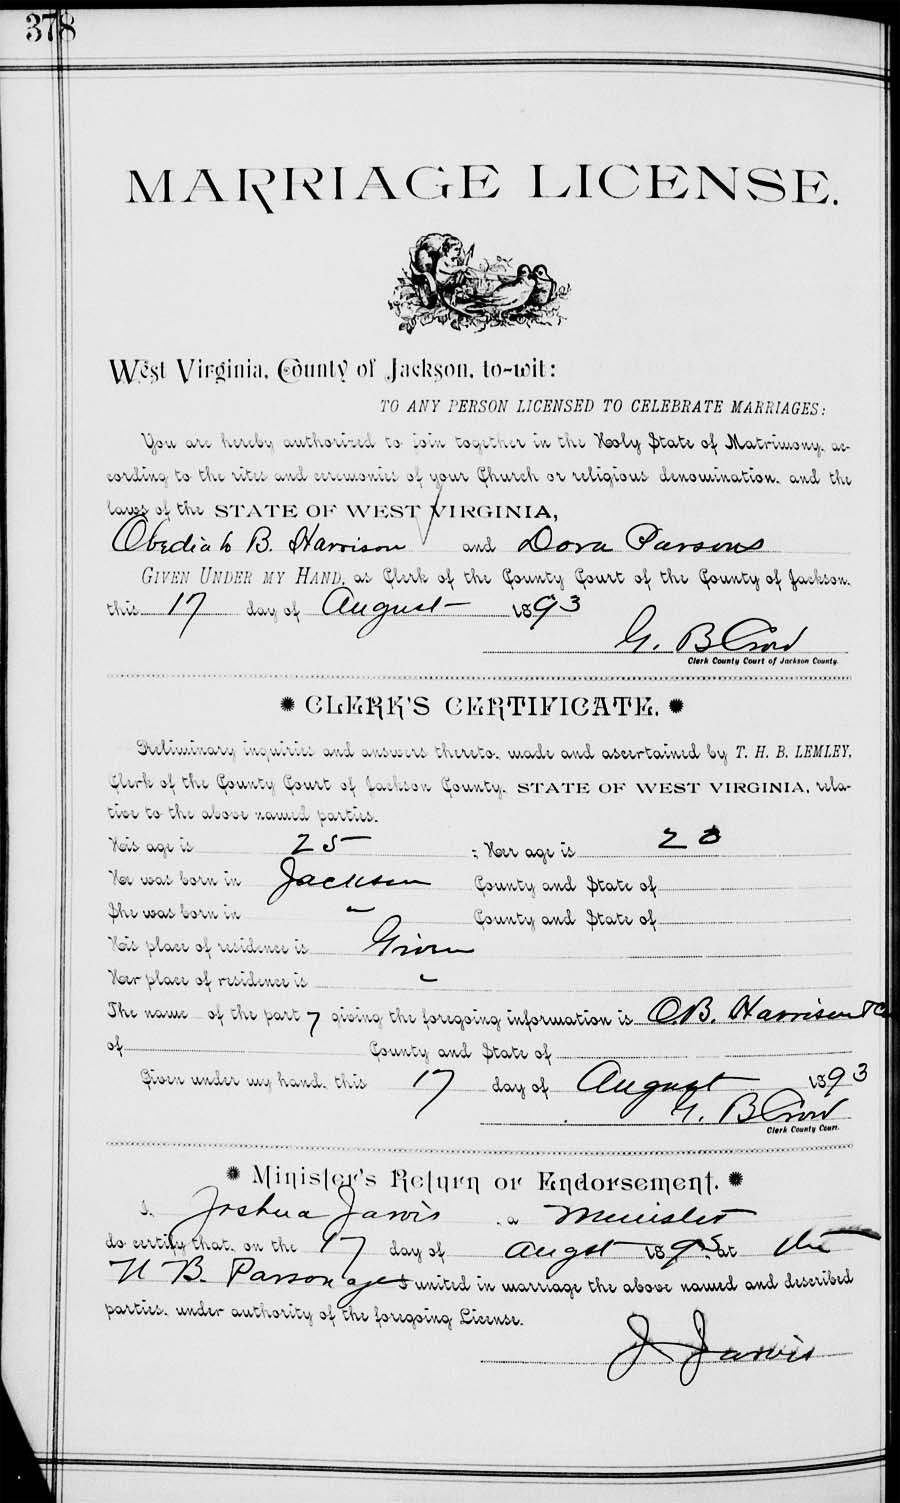 378
MARRIAGE LICENSE.
West Virginia, County of Jackson, to-wit:
TO ANY PERSON LICENSED TO CELEBRATE MARRIAGES:
You are hereby authorized to join together in the Holy State of Matrimony, ac-
cording to the rites and ceremonies of your Church or religious denomination, and the
laws of the STATE OF WEST VIRGINIA,
Obediah B. Harrison and Dora Parsons
GIVEN UNDER MY HAND, as Clerk of the County Court of the County of Jackson,
this 17 day of August 1893
G. B. Crow
Clerk County Court of Jackson County.
CLERK'S CERTIFICATE.
Preliminary inquiries and answers thereto, made and ascertained by T. H. B. LEMLEY,
Clerk of the County Court of Jackson County, STATE OF WEST VIRGINIA, rela-
tive to the above named parties.
His age is 25 ; Her age is 20
He was born in Jackson County and State of
She was born in " County and State of
His place of residence is Given
Her place of residence is "
The name of the party giving the foregoing information is O.B. Harrison
of County and State of
Given under my hand, this 17 day of August 1893
G. B. Crow
Clerk County Court.
Minister's Return or Endorsement.
I, Joshua Jarvis, a Minister
do certify that, on the 17 day of Augst 189 at the
U B. Parsonage I united in marriage the above named and described
parties, under authority of the foregoing License.
J Jarvis